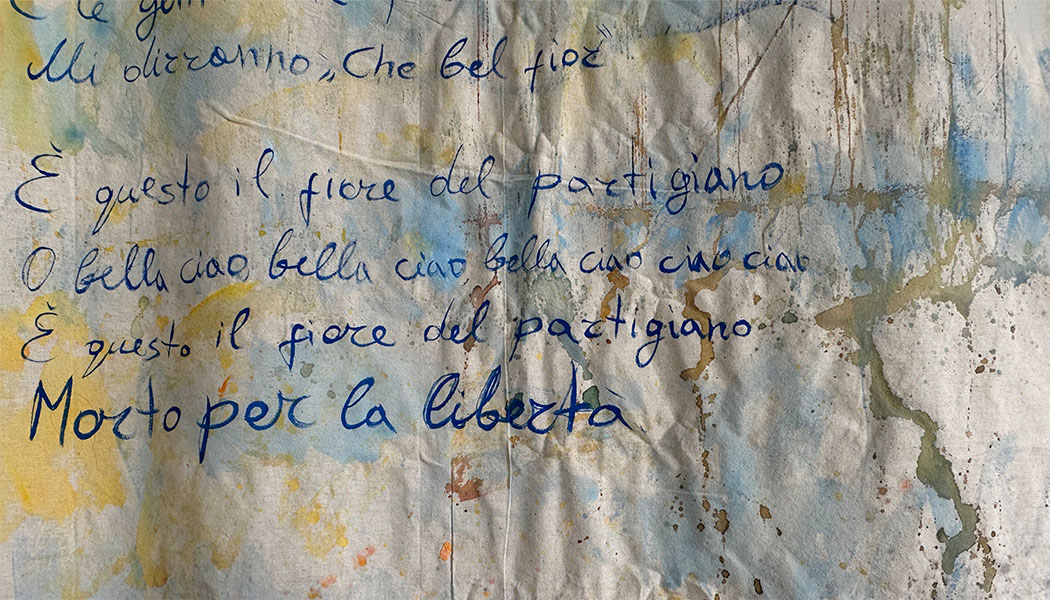 E le
Mi dirranno „Che bel fior"
È questo il fiore del partigiano
O bella ciao, bella ciao, bella ciao ciao ciao
È questo il fiore del partigiano
Morto per la libertà